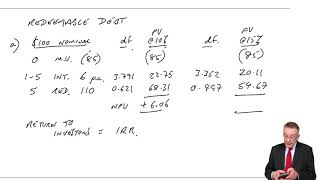 REDEEMABLE DEBT
a) $100 NOMINAL df. PV @10% df. PV @15%
0 M.V. (85) (85) (85)
1-5 INT. 6 p.a. 3.791 22.75 3.352 20.11
5 RED. 110 0.621 68.31 0.497 54.67
NPV + 6.06
RETURN TO
INVESTORS = IRR.